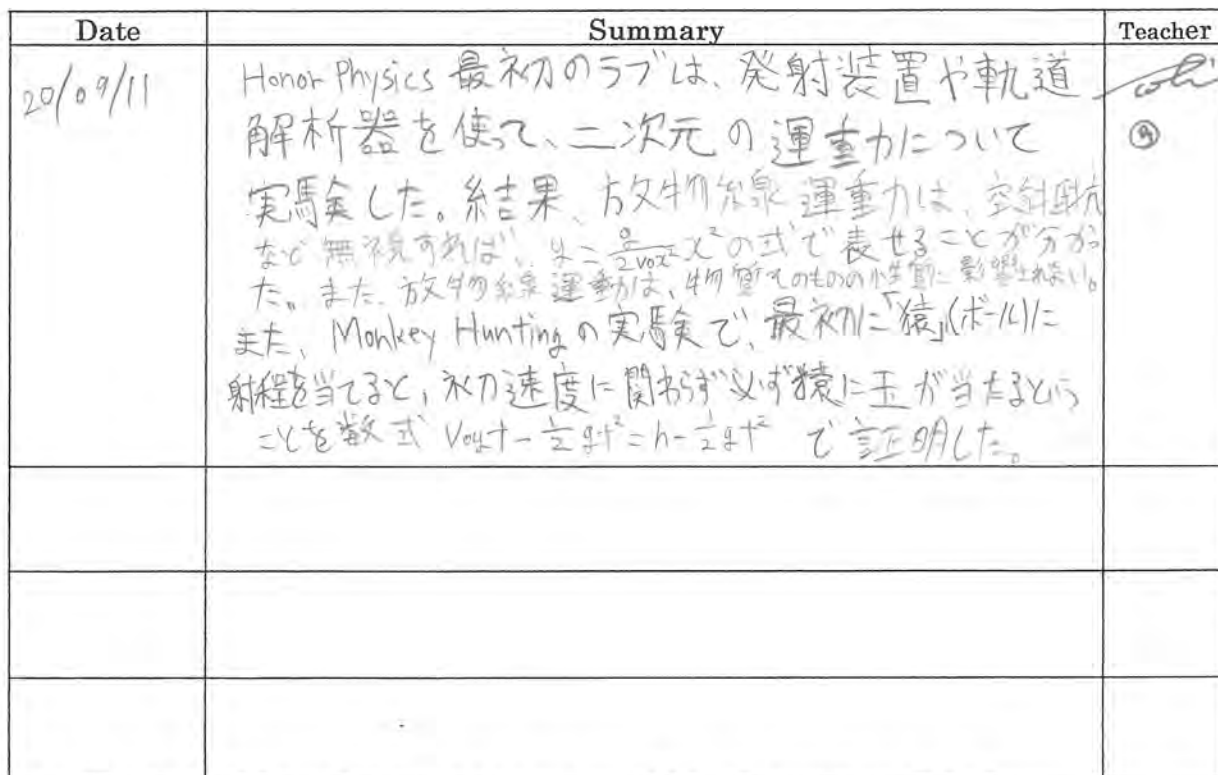 Date Summary Teacher
20/09/11
Honor Physics 最初のラブは、発射装置や軌道
解析器を使って、二次元の運動について
実験した。結果、放物線運動は、空気抵抗
など無視すれば、y = g/2v0x² x²の式で表せることが分かっ
た。また、放物線運動は、物質そのものの性質に影響されない。
また、Monkey Huntingの実験で、最初に「猿」(ボール)に
射程を当てると、初速度に関わらず必ず猿に玉が当たるという
ことを数式 V0yt - 1/2 gt² = h - 1/2 gt² で証明した。